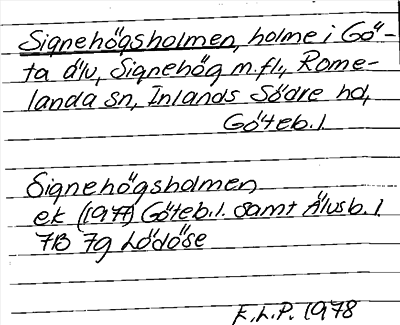 Signehögsholmen, holme i Gö-
ta älv, Signehög m.fl., Rome-
landa sn, Inlands Södre hd,
Göteb.l.
Signehögsholmen
ek (1977) Göteb.l. samt Älvsb.l.
7B 7g Lödöse
K.L.P. 1978